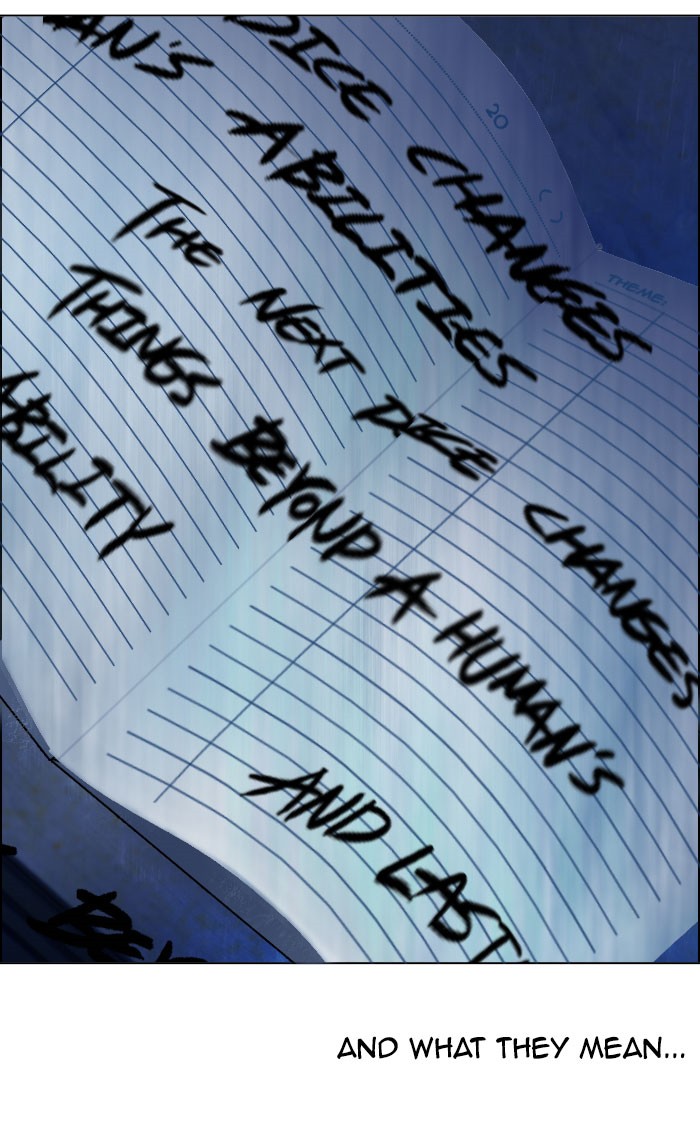 DICE CHANGES
MAN'S ABILITIES
THE NEXT DICE CHANGES
THINGS BEYOND A HUMAN'S
ABILITY
AND LAST
20 ( )
THEME.
AND WHAT THEY MEAN...